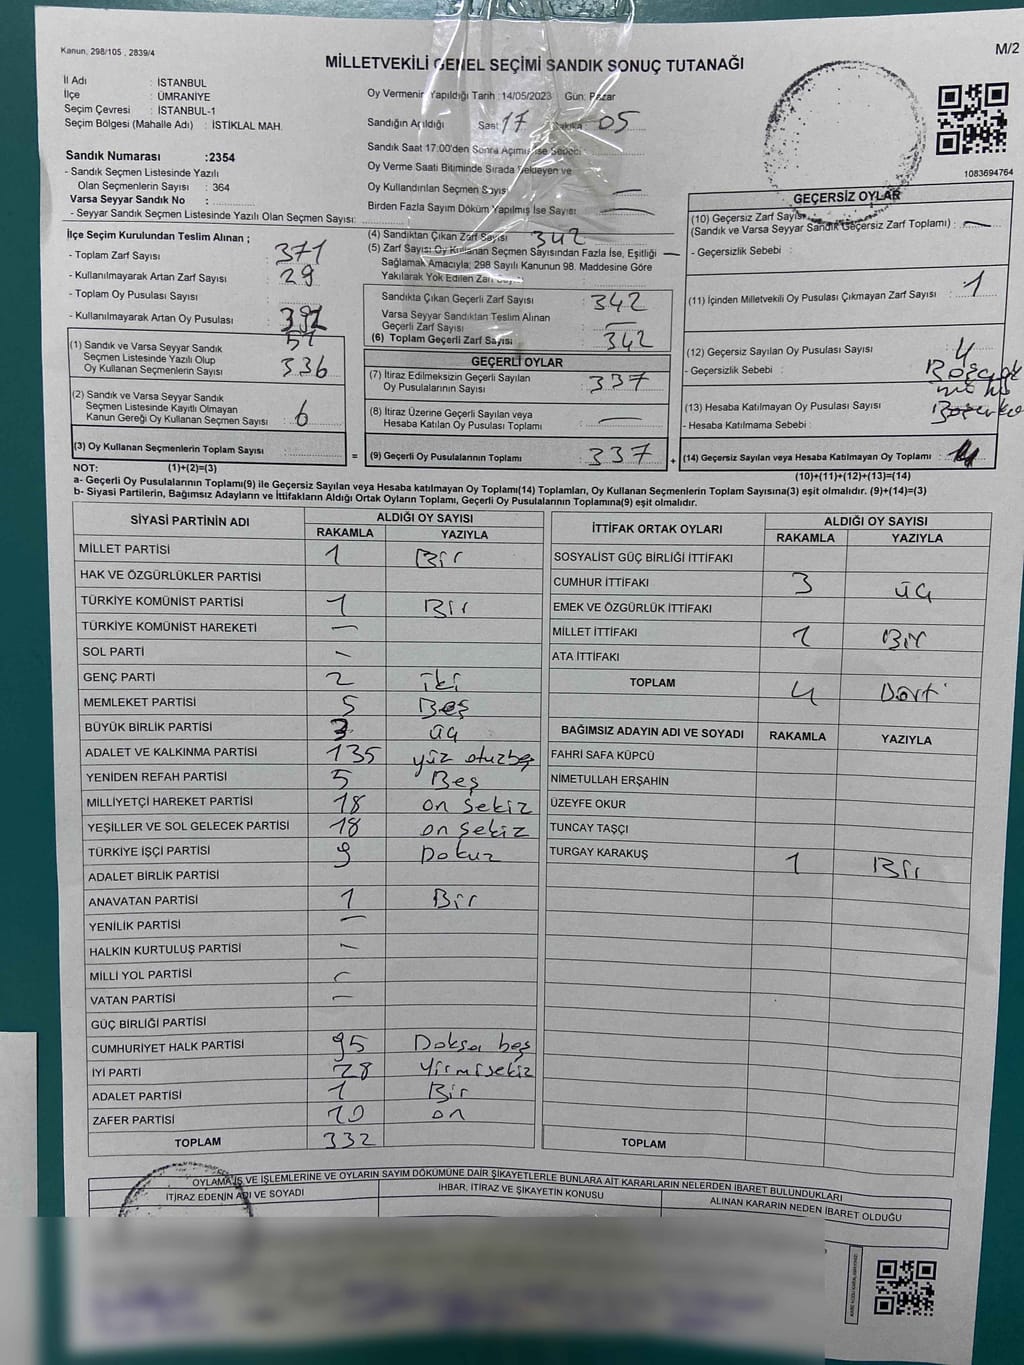 Kanun, 298/105 , 2839/4
M/2
MİLLETVEKİLİ GENEL SEÇİMİ SANDIK SONUÇ TUTANAĞI
İl Adı : İSTANBUL
İlçe : ÜMRANİYE
Seçim Çevresi : İSTANBUL-1
Seçim Bölgesi (Mahalle Adı) : İSTİKLAL MAH.
Sandık Numarası :2354
- Sandık Seçmen Listesinde Yazılı
Olan Seçmenlerin Sayısı : 364
Varsa Seyyar Sandık No :
- Seyyar Sandık Seçmen Listesinde Yazılı Olan Seçmen Sayısı:
Oy Vermenin Yapıldığı Tarih :14/05/2023 Gün: Pazar
Sandığın Açıldığı Saat 17 Dakika: 05
Sandık Saat 17.00'den Sonra Açılmış İse Sebebi
Oy Verme Saati Bitiminde Sırada Bekleyen ve
Oy Kullandırılan Seçmen Sayısı —
Birden Fazla Sayım Döküm Yapılmış İse Sayısı —
1083694764
İlçe Seçim Kurulundan Teslim Alınan ;
- Toplam Zarf Sayısı : 371
- Kullanılmayarak Artan Zarf Sayısı : 29
- Toplam Oy Pusulası Sayısı :
- Kullanılmayarak Artan Oy Pusulası :
(1) Sandık ve Varsa Seyyar Sandık
Seçmen Listesinde Yazılı Olup
Oy Kullanan Seçmenlerin Sayısı : 336
(2) Sandık ve Varsa Seyyar Sandık
Seçmen Listesinde Kayıtlı Olmayan
Kanun Gereği Oy Kullanan Seçmen Sayısı : 6
(3) Oy Kullanan Seçmenlerin Toplam Sayısı :
(4) Sandıktan Çıkan Zarf Sayısı 342
(5) Zarf Sayısı Oy Kullanan Seçmen Sayısından Fazla İse, Eşitliği
Sağlamak Amacıyla; 298 Sayılı Kanunun 98. Maddesine Göre
Yakılarak Yok Edilen Zarf Sayısı —
Sandıkta Çıkan Geçerli Zarf Sayısı : 342
Varsa Seyyar Sandıktan Teslim Alınan
Geçerli Zarf Sayısı : —
(6) Toplam Geçerli Zarf Sayısı : 342
GEÇERLİ OYLAR
(7) İtiraz Edilmeksizin Geçerli Sayılan
Oy Pusulalarının Sayısı : 337
(8) İtiraz Üzerine Geçerli Sayılan veya
Hesaba Katılan Oy Pusulası Toplamı : —
= (9) Geçerli Oy Pusulalarının Toplamı : 337
GEÇERSİZ OYLAR
(10) Geçersiz Zarf Sayısı
(Sandık ve Varsa Seyyar Sandık Geçersiz Zarf Toplamı) : —
- Geçersizlik Sebebi :
(11) İçinden Milletvekili Oy Pusulası Çıkmayan Zarf Sayısı : 1
(12) Geçersiz Sayılan Oy Pusulası Sayısı : 4
- Geçersizlik Sebebi :
(13) Hesaba Katılmayan Oy Pusulası Sayısı :
- Hesaba Katılmama Sebebi :
+ (14) Geçersiz Sayılan veya Hesaba Katılmayan Oy Toplamı :
NOT: (1)+(2)=(3)
(10)+(11)+(12)+(13)=(14)
a- Geçerli Oy Pusulalarının Toplamı(9) ile Geçersiz Sayılan veya Hesaba katılmayan Oy Toplamı(14) Toplamları, Oy Kullanan Seçmenlerin Toplam Sayısına(3) eşit olmalıdır. (9)+(14)=(3)
b- Siyasi Partilerin, Bağımsız Adayların ve İttifakların Aldığı Ortak Oyların Toplamı, Geçerli Oy Pusulalarının Toplamına(9) eşit olmalıdır.
SİYASİ PARTİNİN ADI ALDIĞI OY SAYISI
RAKAMLA YAZIYLA
MİLLET PARTİSİ 1 Bir
HAK VE ÖZGÜRLÜKLER PARTİSİ
TÜRKİYE KOMÜNİST PARTİSİ 1 Bir
TÜRKİYE KOMÜNİST HAREKETİ —
SOL PARTİ —
GENÇ PARTİ 2 iki
MEMLEKET PARTİSİ 5 Beş
BÜYÜK BİRLİK PARTİSİ 3 üç
ADALET VE KALKINMA PARTİSİ 135 yüz otuzbeş
YENİDEN REFAH PARTİSİ 5 Beş
MİLLİYETÇİ HAREKET PARTİSİ 18 on sekiz
YEŞİLLER VE SOL GELECEK PARTİSİ 18 on sekiz
TÜRKİYE İŞÇİ PARTİSİ 9 Dokuz
ADALET BİRLİK PARTİSİ
ANAVATAN PARTİSİ 1 Bir
YENİLİK PARTİSİ —
HALKIN KURTULUŞ PARTİSİ —
MİLLİ YOL PARTİSİ —
VATAN PARTİSİ —
GÜÇ BİRLİĞİ PARTİSİ
CUMHURİYET HALK PARTİSİ 95 Doksa beş
İYİ PARTİ 28 Yirmisekiz
ADALET PARTİSİ 1 Bir
ZAFER PARTİSİ 10 on
TOPLAM 332
İTTİFAK ORTAK OYLARI ALDIĞI OY SAYISI
RAKAMLA YAZIYLA
SOSYALİST GÜÇ BİRLİĞİ İTTİFAKI
CUMHUR İTTİFAKI 3 üç
EMEK VE ÖZGÜRLÜK İTTİFAKI
MİLLET İTTİFAKI 1 Bir
ATA İTTİFAKI
TOPLAM 4 Dört
BAĞIMSIZ ADAYIN ADI VE SOYADI RAKAMLA YAZIYLA
FAHRİ SAFA KÜPCÜ
NİMETULLAH ERŞAHİN
ÜZEYFE OKUR
TUNCAY TAŞÇI
TURGAY KARAKUŞ 1 Bir
TOPLAM
OYLAMA İŞ VE İŞLEMLERİNE VE OYLARIN SAYIM DÖKÜMÜNE DAİR ŞİKAYETLERLE BUNLARA AİT KARARLARIN NELERDEN İBARET BULUNDUKLARI
İTİRAZ EDENİN ADI VE SOYADI
İHBAR, İTİRAZ VE ŞİKAYETİN KONUSU
ALINAN KARARIN NEDEN İBARET OLDUĞU